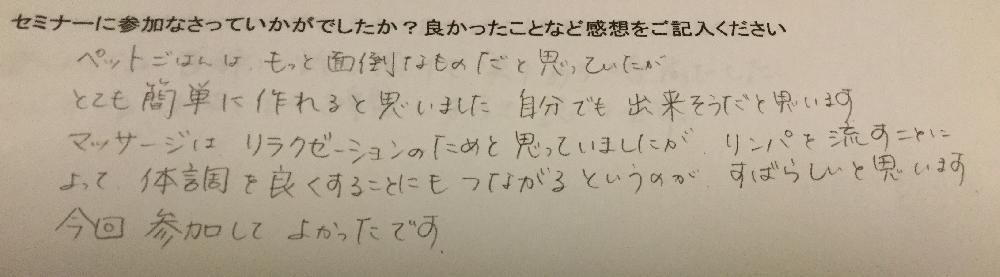 セミナーに参加なさっていかがでしたか？良かったことなど感想をご記入ください
ペットごはんは、もっと面倒なものだと思っていたが
とても簡単に作れると思いました 自分でも出来そうだと思います
マッサージは リラクゼーションのためと思っていましたが、リンパを流すことに
よって、体調を良くすることにもつながるというのが、すばらしいと思います
今回 参加して よかったです。